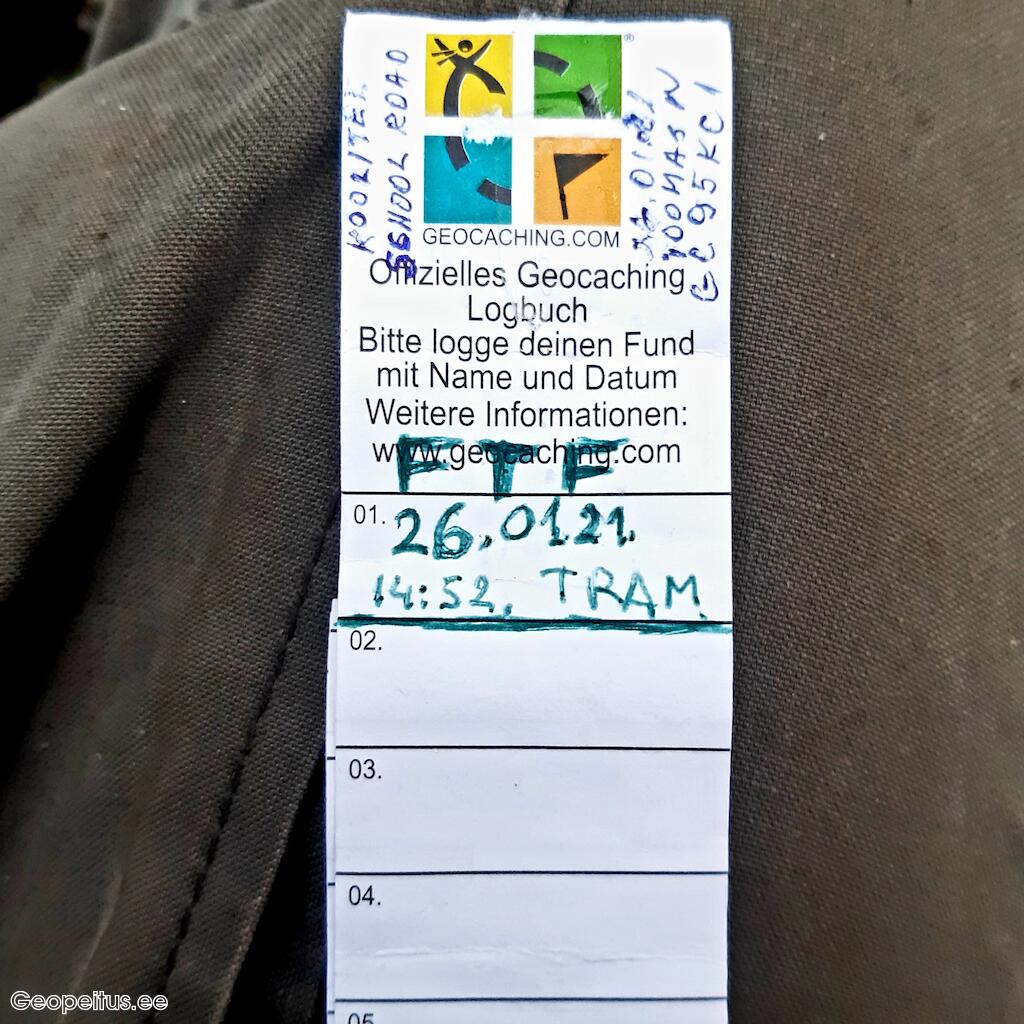 KOOLITEE
SCHOOL ROAD
®
TOOMAS N
GC95KC1
GEOCACHING.COM
Offizielles Geocaching
Logbuch
Bitte logge deinen Fund
mit Name und Datum
Weitere Informationen:
www.geocaching.com
FTF
01. 26.01.21.
14:52. TRAM
02.
03.
04.
05
Geopeitus.ee